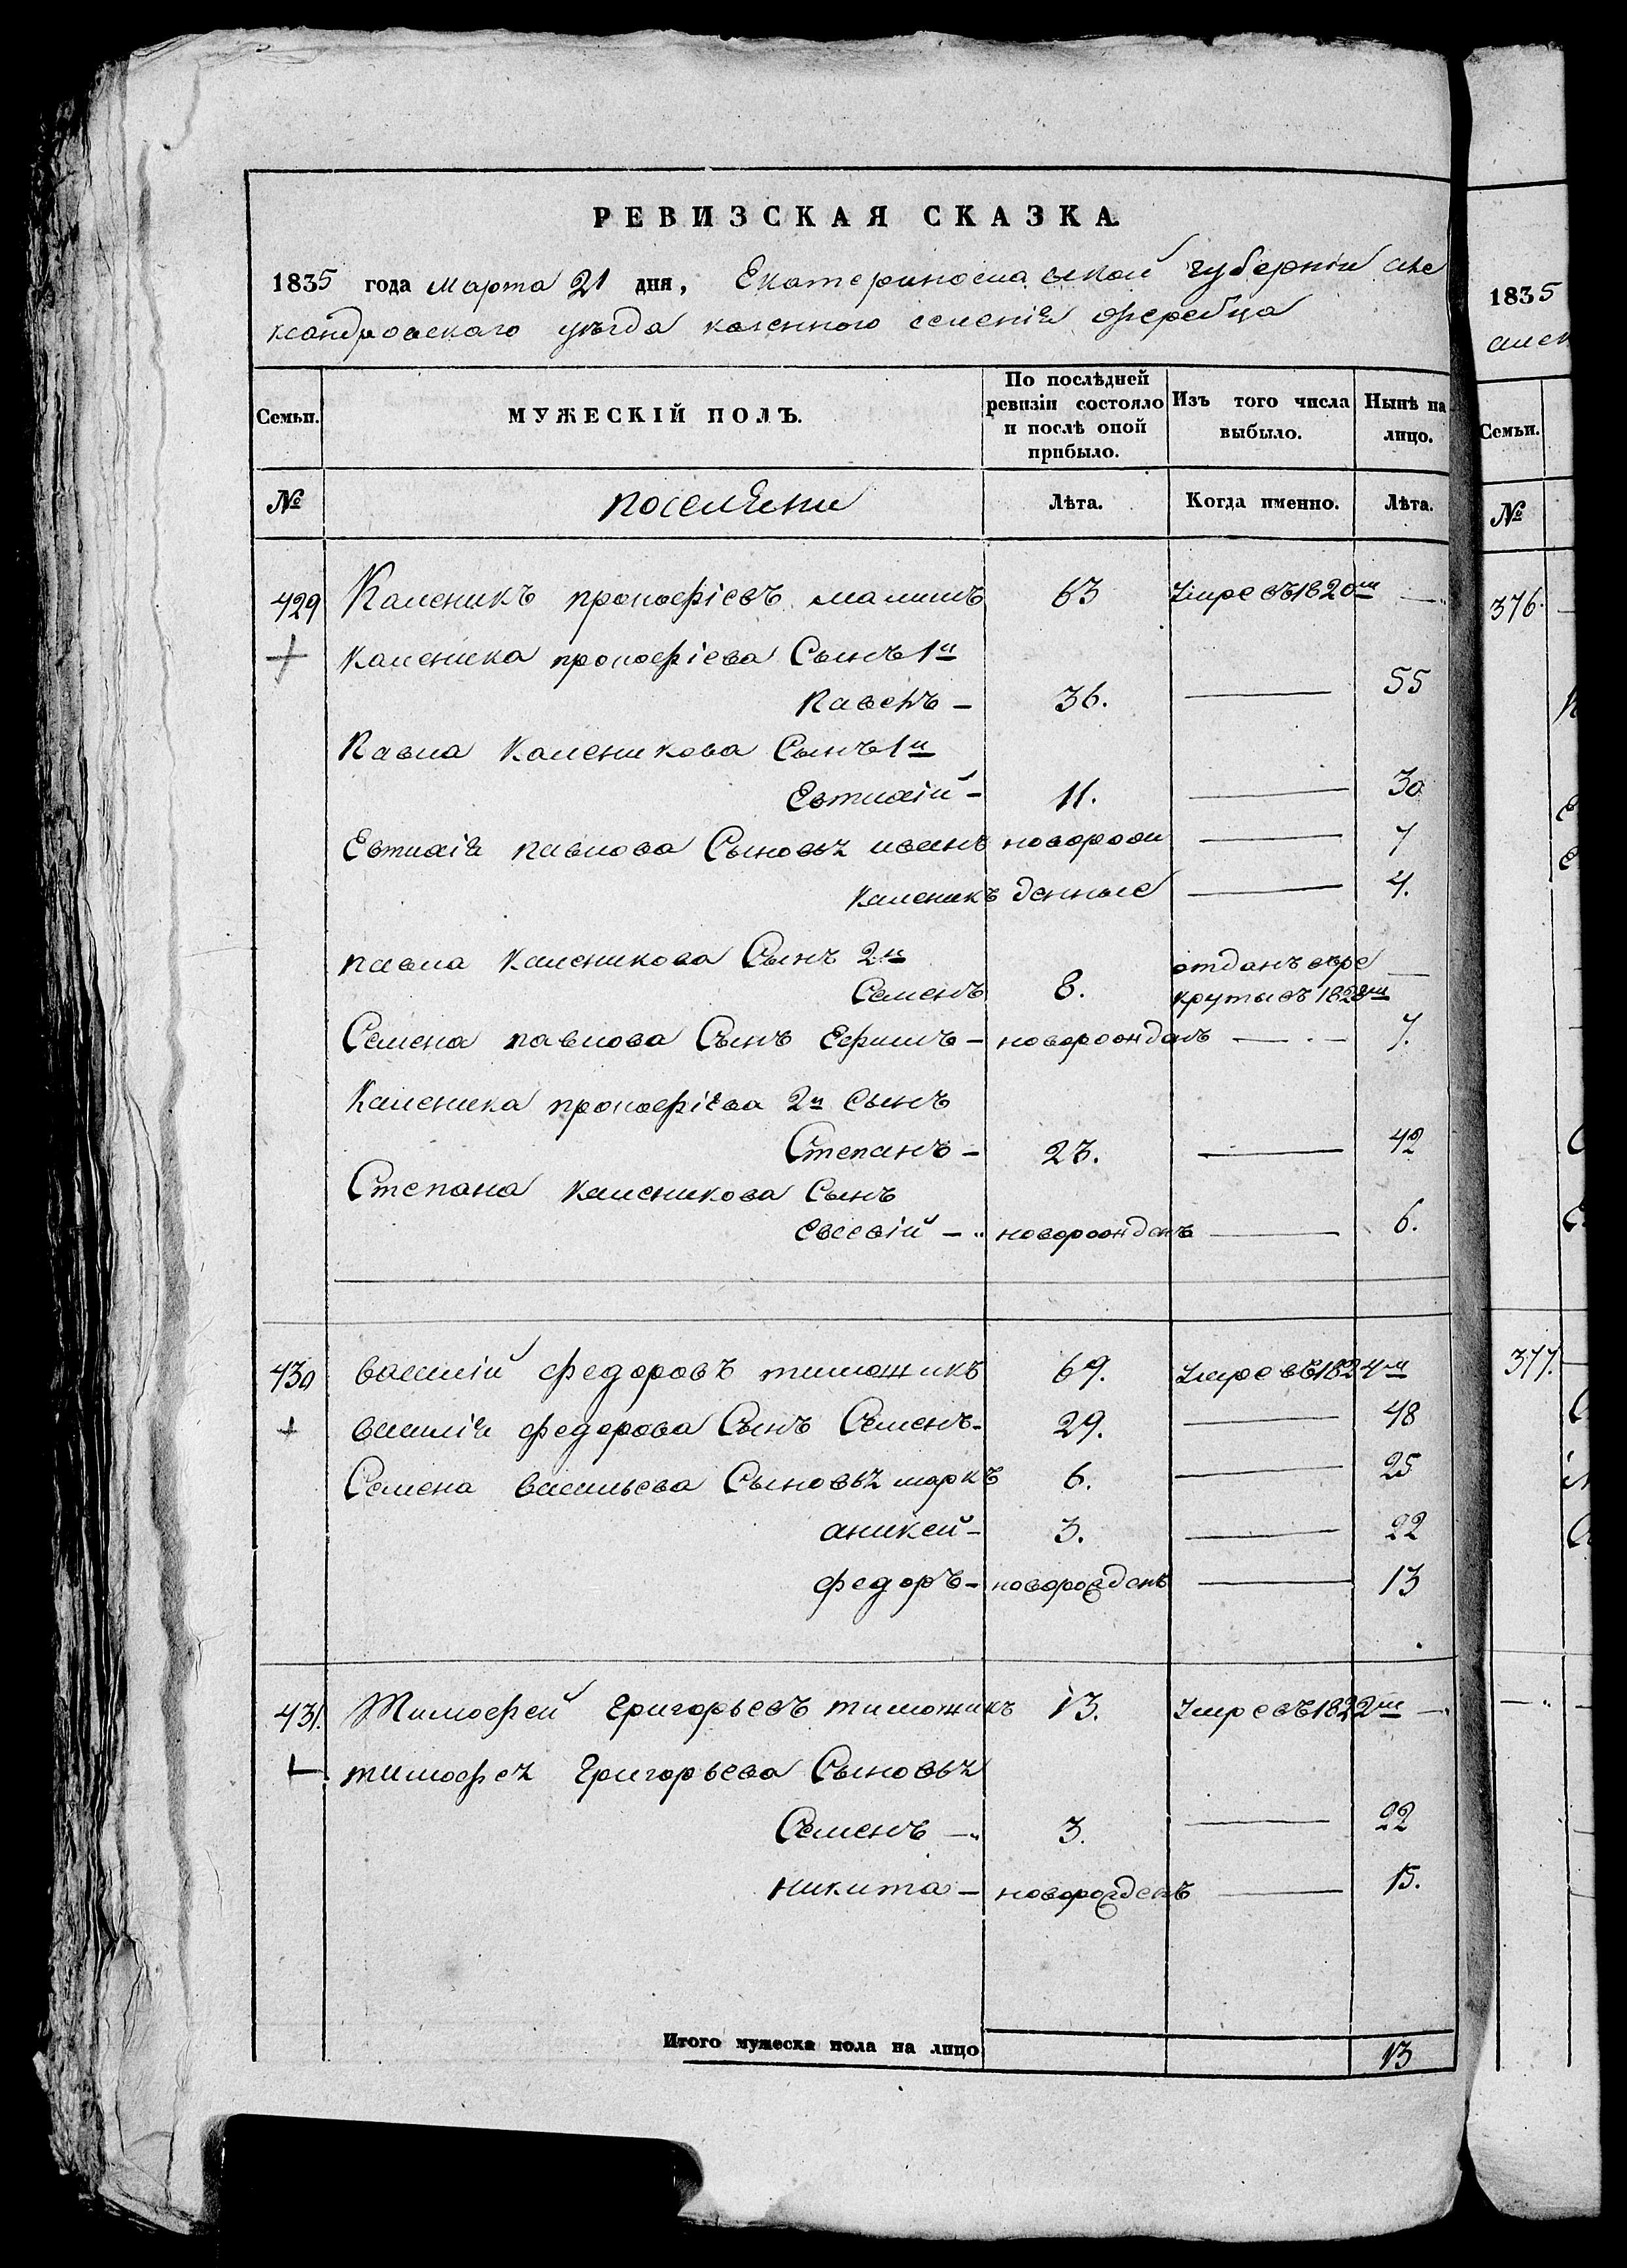 РЕВИЗСКАЯ СКАЗКА.
1835 года марта 21 дня, Екатериносла вской губерніи але
ксандровского уезда казенного селенія жеребца
Семьи. МУЖЕСКІЙ ПОЛЪ. По послѣдней ревизіи состояло и послѣ оной прибыло. Изъ того числа выбыло. Нынѣ на лицо.
№ поселяни Лѣта. Когда именно. Лѣта.
429 Каленикъ прокофіевъ 63 Умре въ 1820м —
каленика прокофіева Сынъ 1й
Павелъ — 36. — 55
Павла Каленикова Сынъ 1й
Евтихій — 11. — 30
Евтихія павлова Сыновья иванъ новорож — 7
каленикъ денные — 4.
павла Каленикова Сынъ 2й
Семенъ 8. отданъ въ ре круты въ 1828м —
Семена павлова Сынъ Ефимъ — новорожденъ — 7.
Каленика прокофіева 2й сынъ
Степанъ — 23. — 42
Степана каленикова Сынъ
Евсевій — новорожденъ — 6.
430 василій федоровъ тимошикъ 69. Умре въ 1824м
василія федорова Сынъ Семенъ — 29. — 48
Семена васильева Сыновья маркъ 6. — 25
аникей — 3. — 22
федоръ — новорозденъ — 13
431. Тимофей григорьевъ тимошикъ 13. Умре въ 1822м —
тимофея григорьева Сыновья
Семенъ — 3. — 22
никита — новорозденъ — 15.
Итого мужеска пола на лицо 13
1835
алек
Семьи.
№
376.
377.